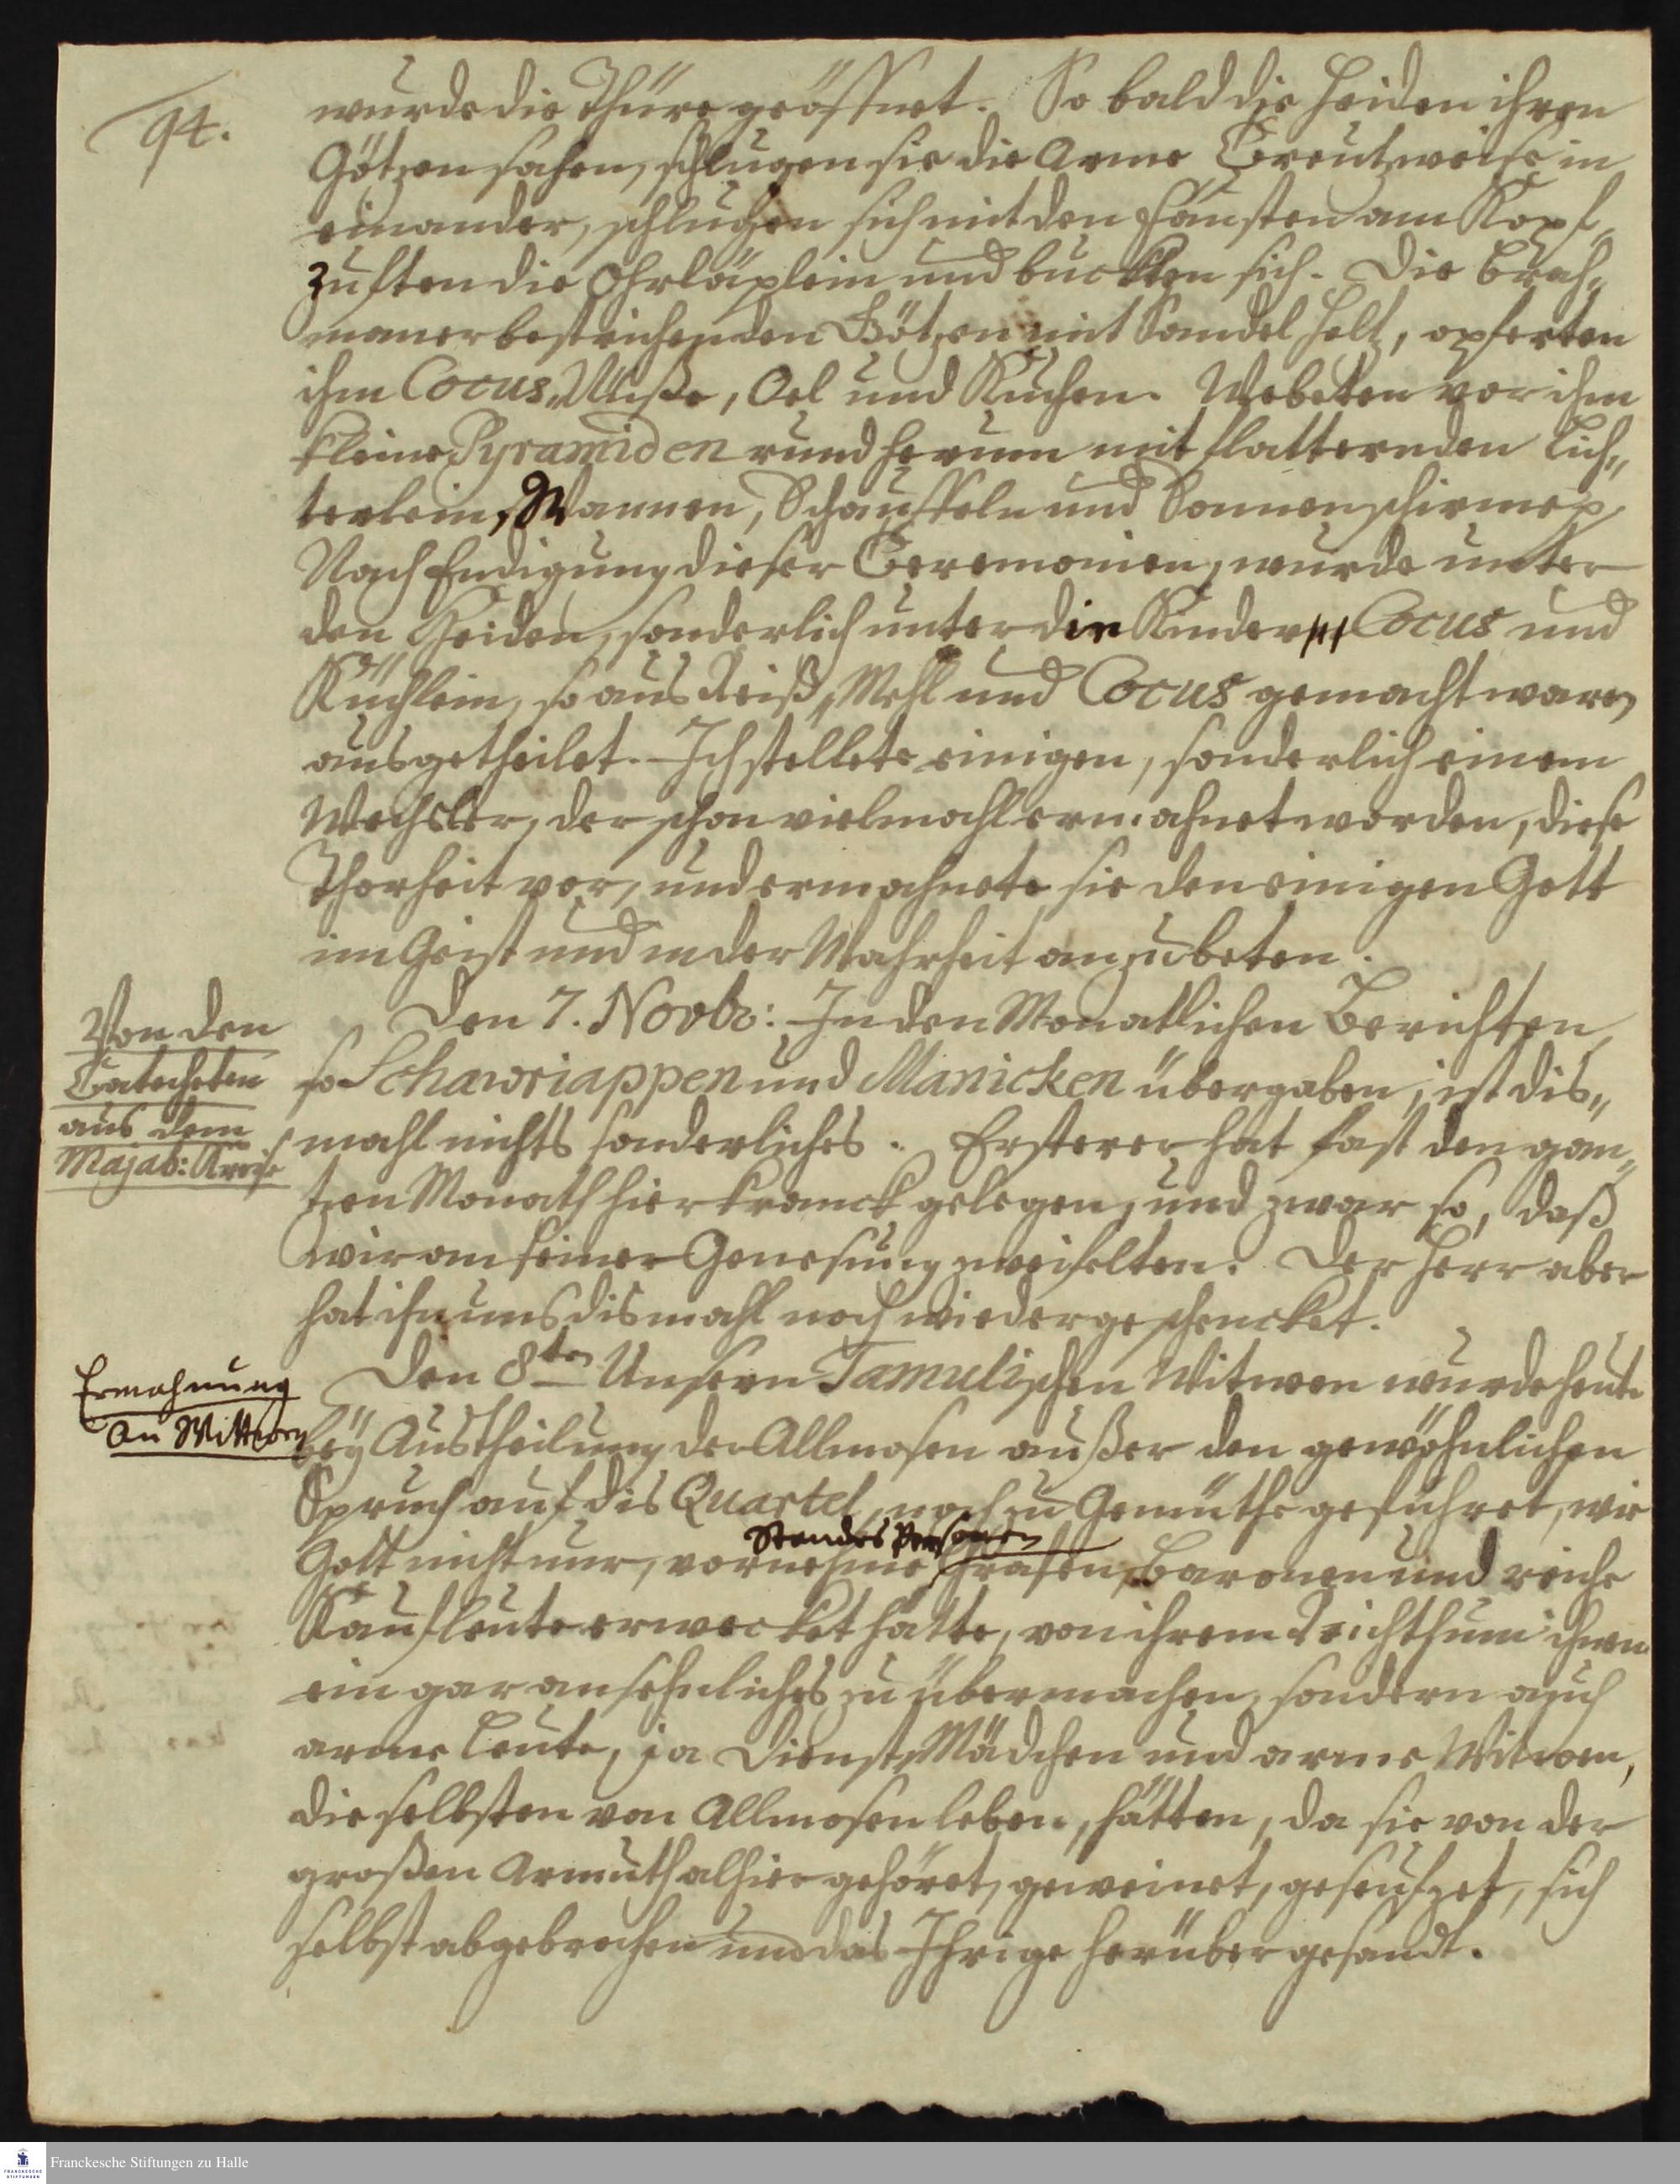 94.
wurde die Thüre geöffnet. So bald die Heiden ihren
Götzen sahen, schlugen sie die Arme Creutzweise in
einander, schlugen sich mit den Fäusten am Kopf,
zupften die Ohrläplein und buckten sich. Die Brah„
maner bestrichen den Götzen mit Sandel Holtz, opferten
ihm Cocus Nüße, Oel und Kuchen. Webeten vor ihm
kleine Pyramiden rund herum mit flatternden Lich„
terlein, Wannen, Schauffeln und Sonnenschirmen
Nach Endigung dieser Ceremonien, wurde unter
den Heiden, sonderlich unter die Kinder Cocus und
Küchlein, so aus Reiß, Mehl und Cocus gemacht waren
ausgetheilet. Ich stellete einigen, sonderlich einem
Wechsler, der schon vielmahl ermahnet worden, diese
Thorheit vor, und ermahnete sie den einigen Gott
im Geist und in der Wahrheit anzubeten.
Von den
Catecheten
aus dem
Majab: Kreise
Den 7. Novbr: In den Monatlichen Berichten,
so Schawriappen und Manicken übergaben, ist dis„
mahl nichts sonderliches. Ersterer hat fast den gan„
tzen Monath hier kranck gelegen, und zwar so, daß
wir an seiner Genesung zweifelten. Der Herr aber
hat ihn uns dismahl noch wieder geschencket.
Ermahnung
an Wittwen
Den 8ten Unsern Tamulischen Witwen wurde heute
bey Austheilung der Allmosen außer den gewöhnlichen
Spruch auf dis Quartel, noch zu Gemüthe geführet, wie
Standes Personen
Gott nicht nur, vornehme Grafen, Baronen und reiche
Kaufleute erwecket hätte, von ihrem Reichthum ihnen
ein gar ansehnliches zu übermachen, sondern auch
arme Leute, ja Dienst Mädchen und arme Witwen,
die selbsten von Allmosen leben, hätten, da sie von der
großen Armuth alhier gehöret, geweinet, geseufzet, sich
selbst abgebrochen und das Ihrige herüber gesandt.
Franckesche Stiftungen zu Halle